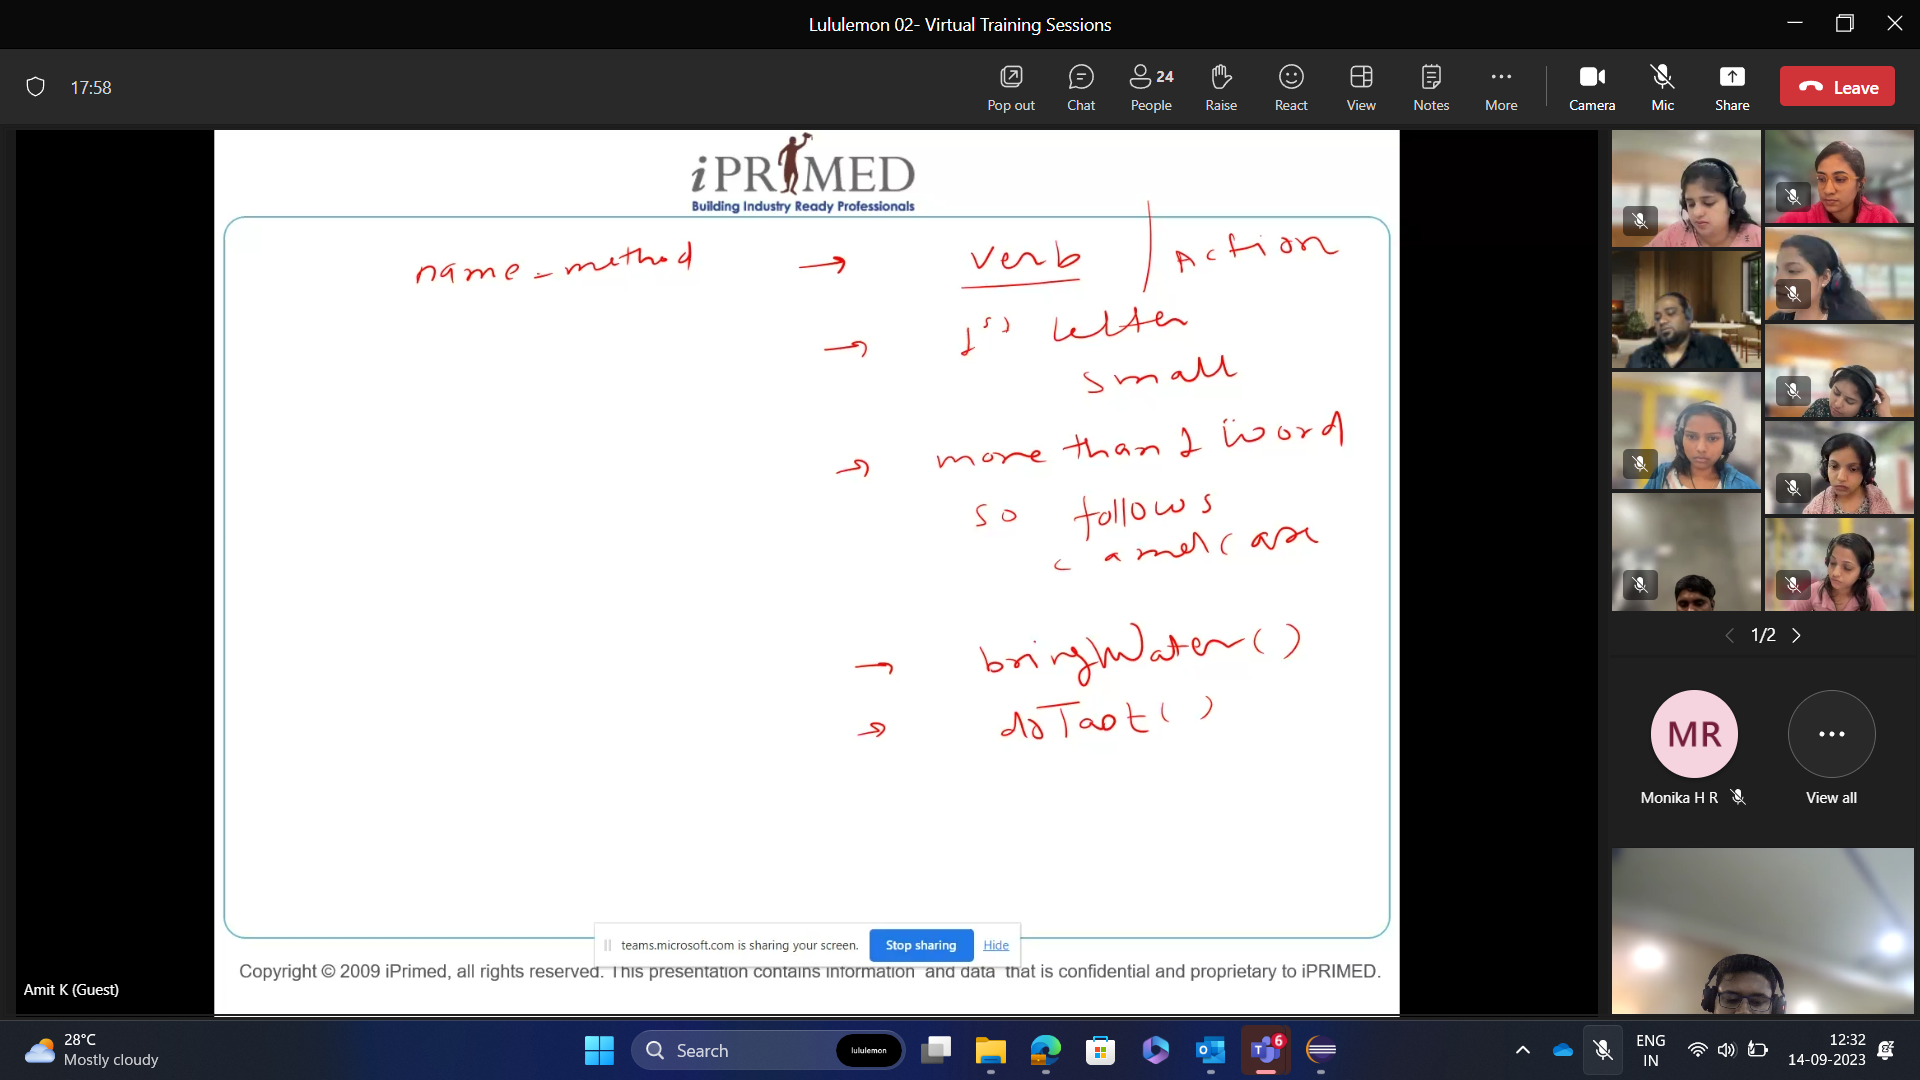 Lululemon 02- Virtual Training Sessions
17:58
Pop out
Chat
24
People
Raise
React
View
Notes
More
Camera
Mic
Share
Leave
iPRIMED
Building Industry Ready Professionals
name-method → verb | Action
→ 1st letter
small
→ more than 1 word
so follows
camelcase
→ bringWater()
→ doTast()
teams.microsoft.com is sharing your screen.
Stop sharing
Hide
Copyright © 2009 iPrimed, all rights reserved. This presentation contains information and data that is confidential and proprietary to iPRIMED.
Amit K (Guest)
1/2
MR
Monika H R
View all
28°C
Mostly cloudy
Search
lululemon
6
ENG
IN
12:32
14-09-2023